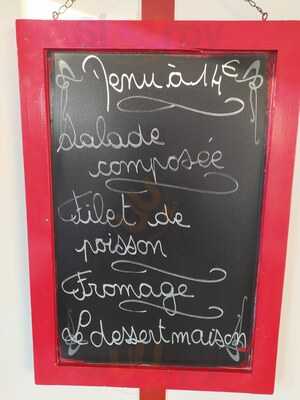 Menu à 14€
Salade
composée
Filet de
poisson
Fromage
dessert maison